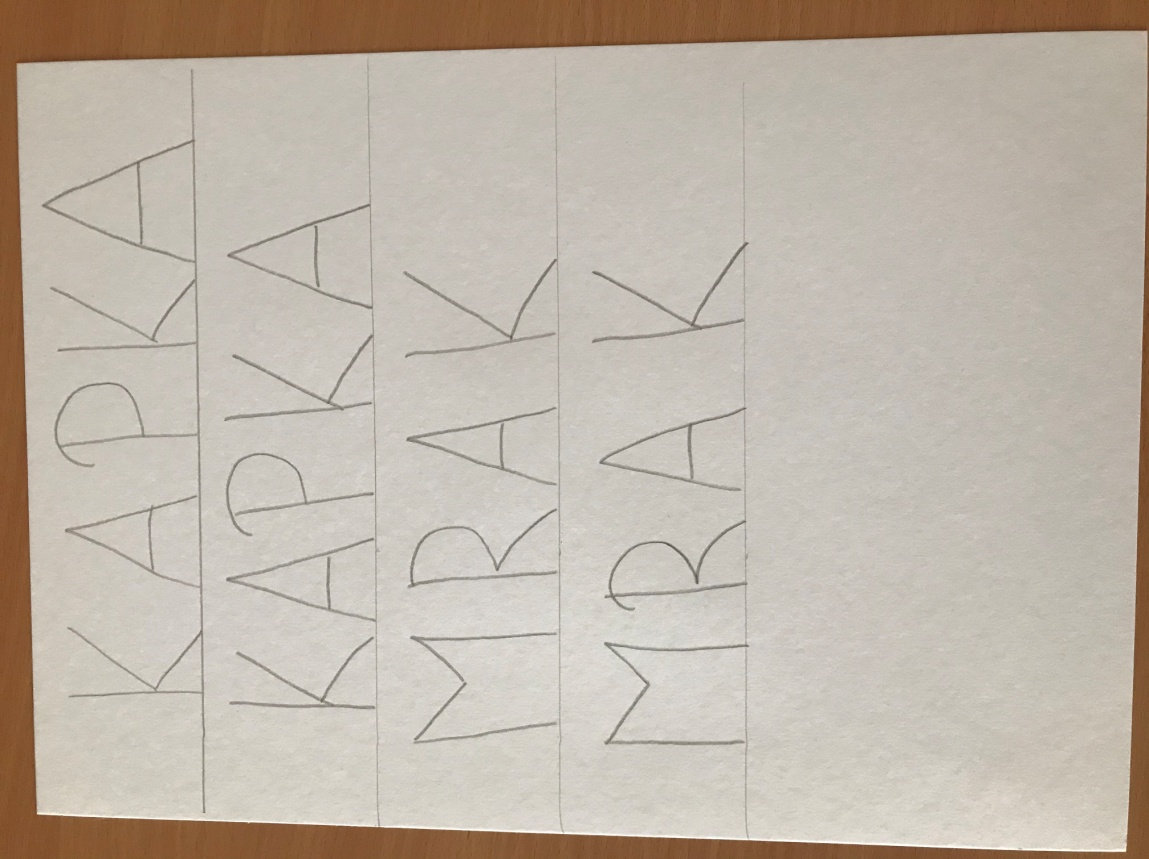 KAPKA
KAPKA
MRAK
MRAK